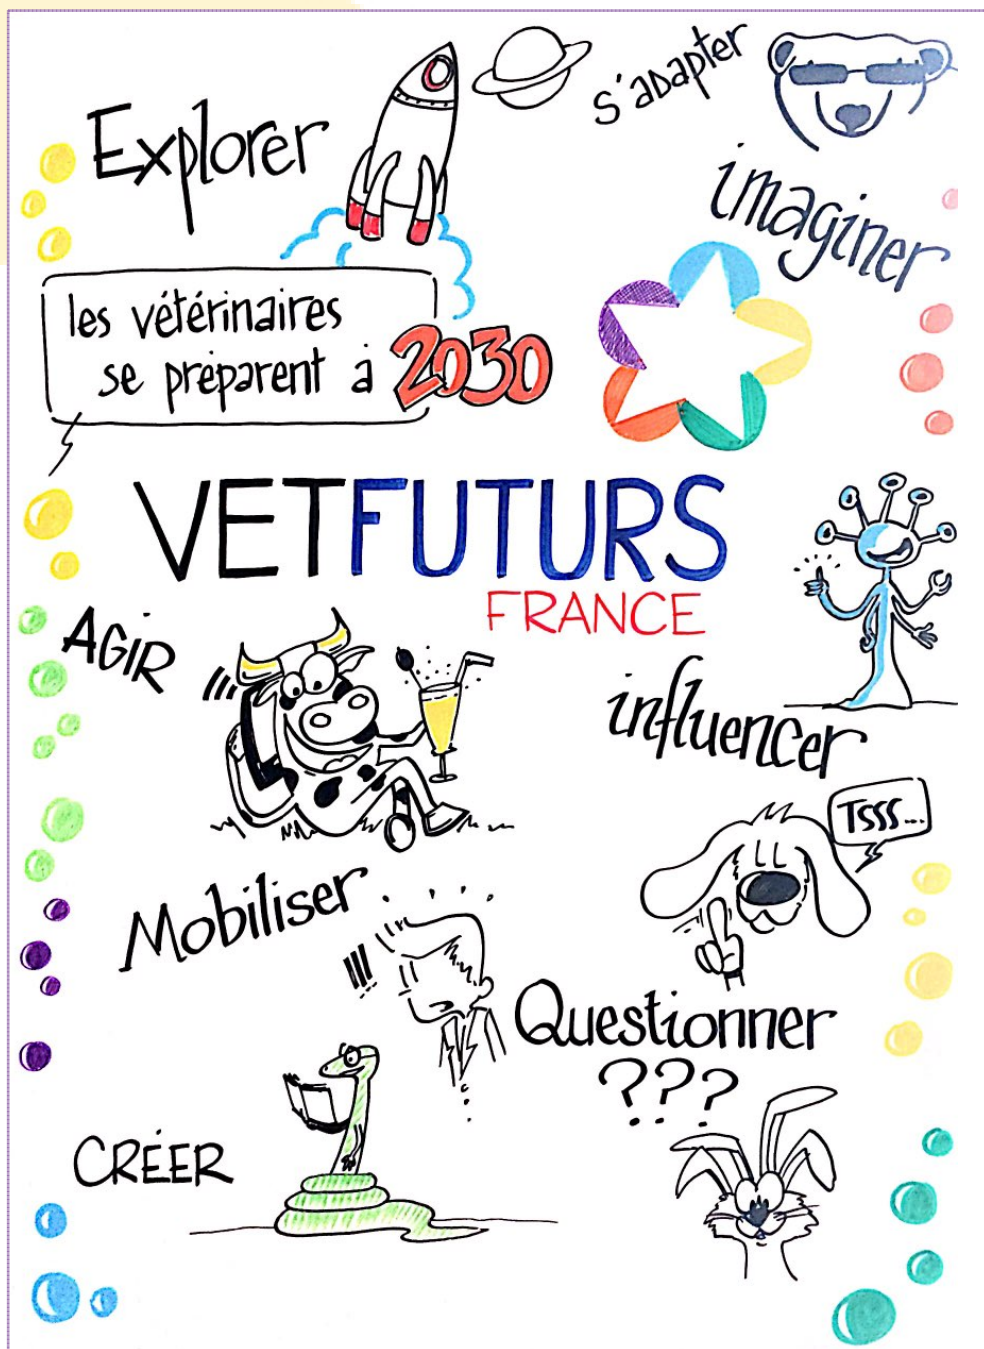 Explorer
s'adapter
imaginer
les vétérinaires
se préparent à 2030
VETFUTURS
FRANCE
AGIR
influencer
TSSS...
Mobiliser
Questionner
???
CRÉER